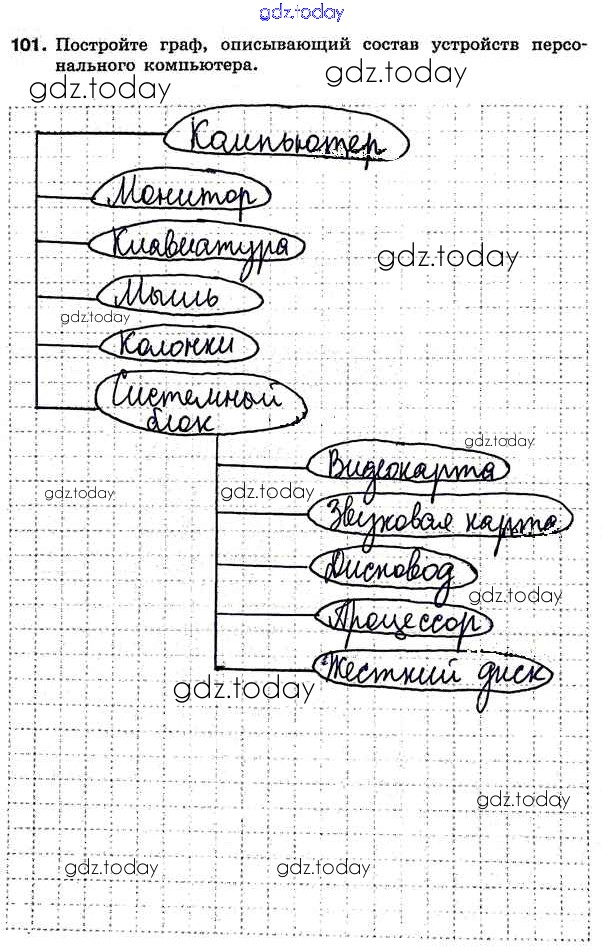 gdz.today
101. Постройте граф, описывающий состав устройств персо-
нального компьютера.
gdz.today
gdz.today
Компьютер
Монитор
Клавиатура
gdz.today
Мышь
gdz.today
Колонки
Системный
блок
gdz.today
Видеокарта
gdz.today
gdz.today
Звуковая карта
Дисковод
gdz.today
Процессор
Жесткий диск
gdz.today
gdz.today
gdz.today
gdz.today